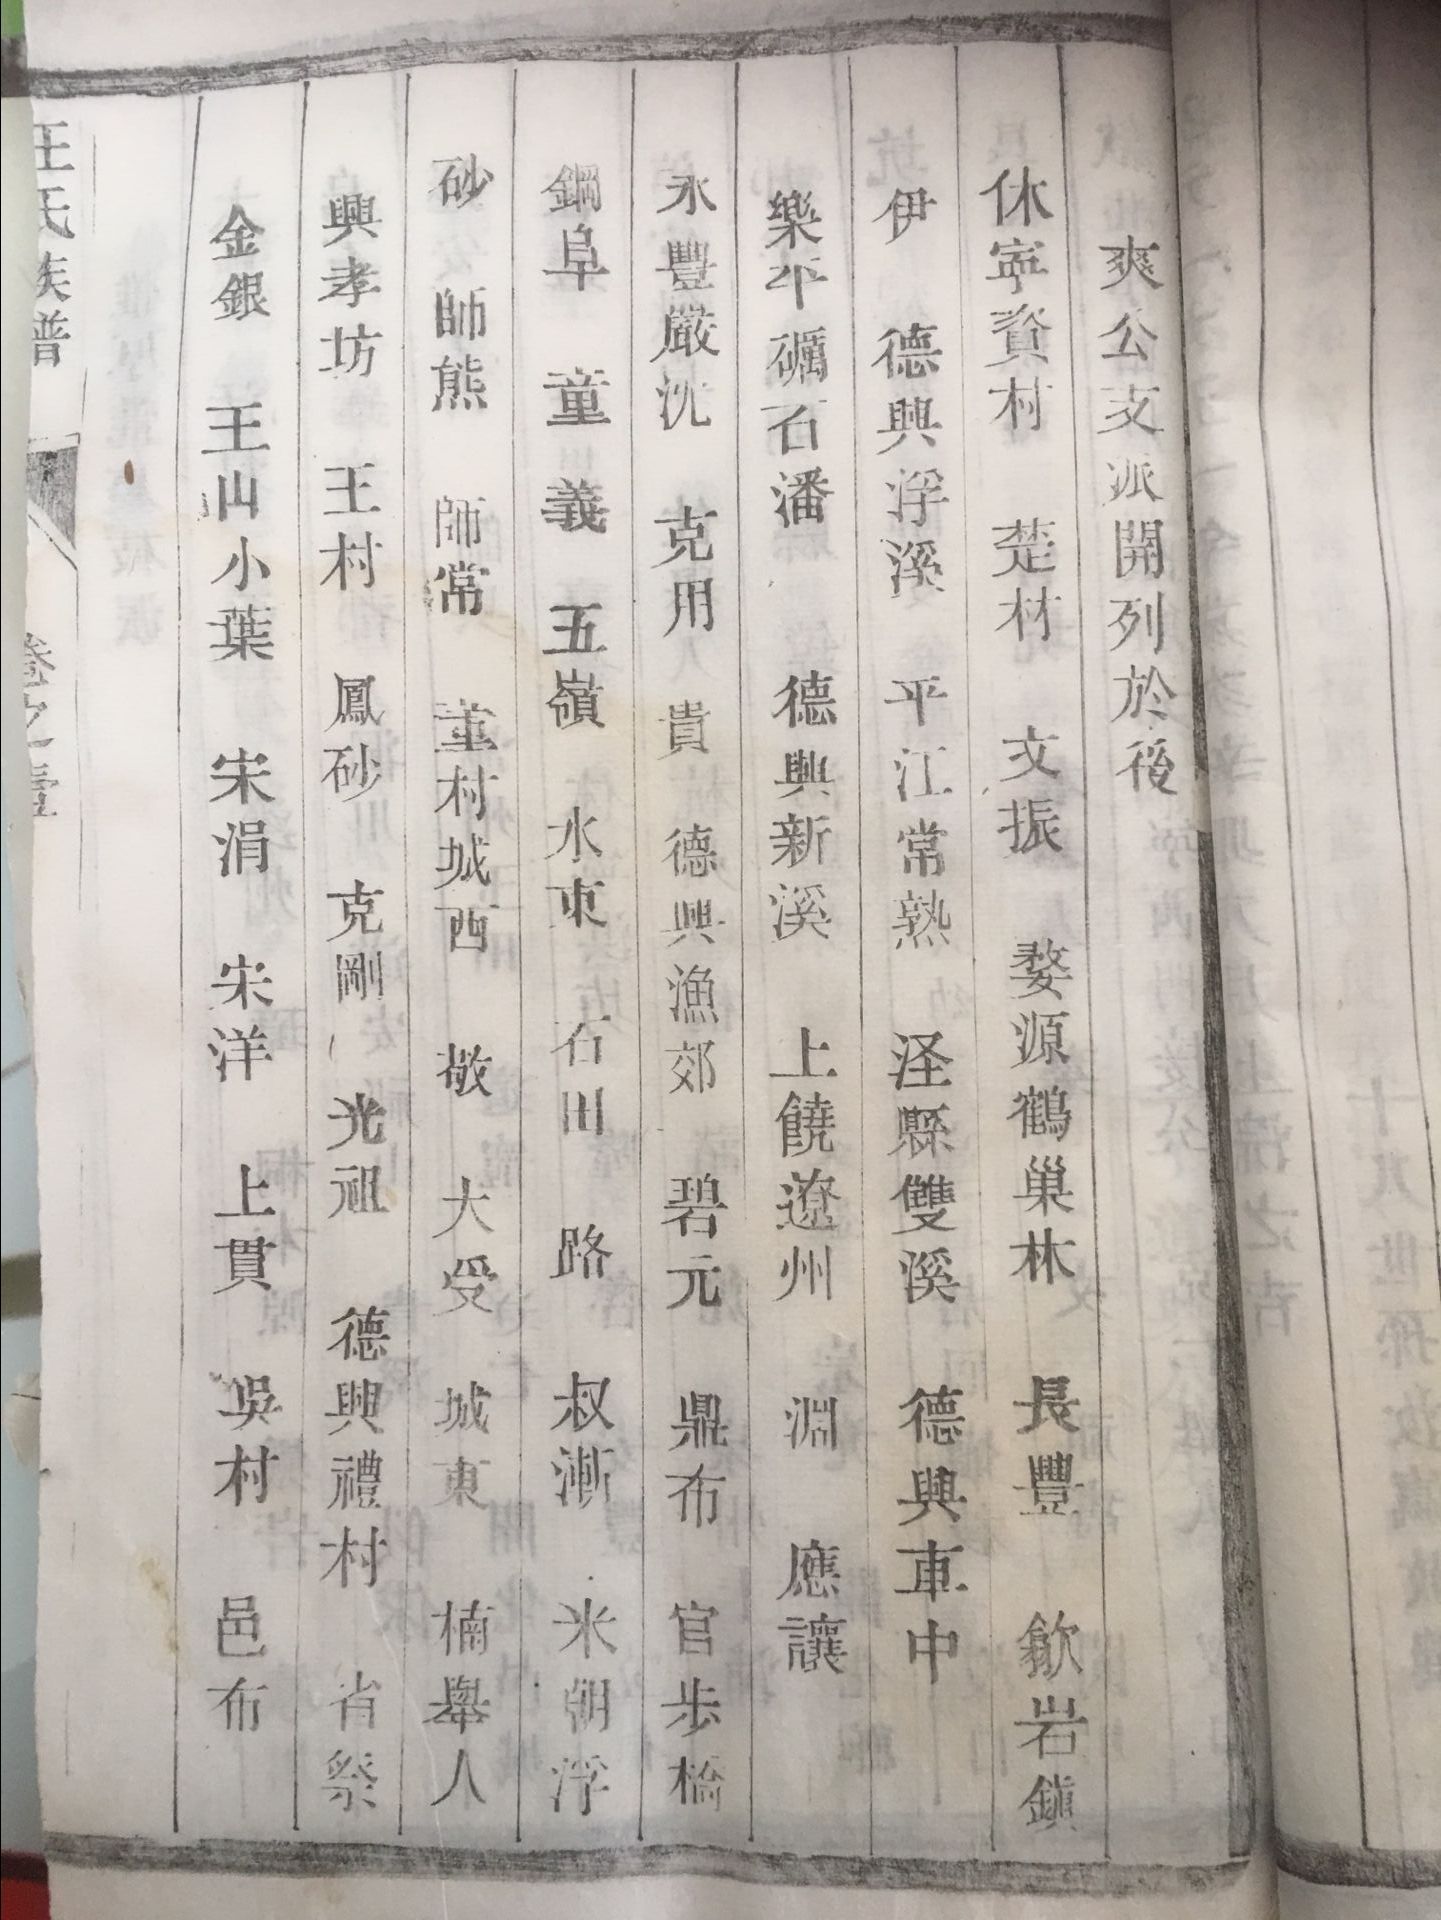 爽公支派開列於後
休寧資村　楚材　文振　婺源鶴巢林　長豐　歙岩鎮
伊　德興浮溪　平江常熟　泾縣雙溪　德興車中
樂平礪石潘　德興新溪　上饒遼州　淵　應讓
永豐嚴沈　克用　貴　德興漁郊　碧元　鼎布　官步橋
鋼阜　童義　五嶺　水東　石田　路　叔漸　米朝浮
砂　師熊　師常　董村城西　敬　大受　城東　楠舉人
興孝坊　王村　鳳砂　克剛　光祖　德興禮村　省祭
金銀　王山小葉　宋涓　宋洋　上貫　吳村　邑布
王氏族譜　卷之壹